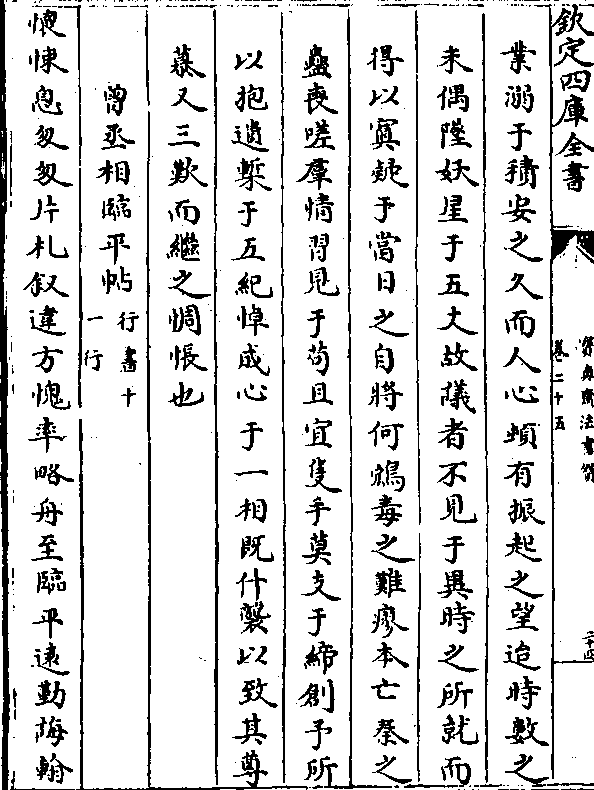 欽定四庫全書
寶真齋法書贊
卷二十五
二十四
業溺于積安之久而人心頓有振起之望迨時數之
未偶墜妖星于五丈故議者不見于異時之所就而
得以寘疵于當日之自將何鴆毒之難瘳本亡蔡之
蠱喪嗟羣情習見于苟且宜隻手莫支于締創予所
以抱遺槧于五紀悼成心于一相既什襲以致其尊
慕又三歎而繼之惆悵也
曾丞相臨平帖行書十一行
懷悚息匆匆片札叙違方愧率略舟至臨平遠勤誨翰